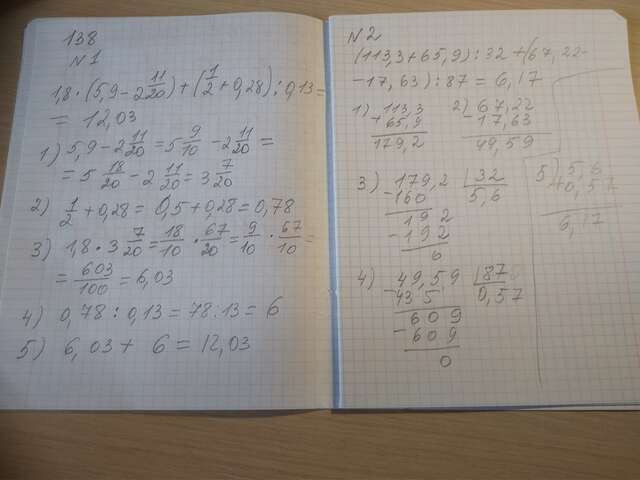 138
N1
1,8 · (5,9 - 2 11/20) + (1/2 + 0,28) : 0,13 =
= 12,03
1) 5,9 - 2 11/20 = 5 9/10 - 2 11/20 =
= 5 18/20 - 2 11/20 = 3 7/20
2) 1/2 + 0,28 = 0,5 + 0,28 = 0,78
3) 1,8 · 3 7/20 = 18/10 · 67/20 = 9/10 · 67/10 =
= 603/100 = 6,03
4) 0,78 : 0,13 = 78 : 13 = 6
5) 6,03 + 6 = 12,03
N2
(113,3 + 65,9) : 32 + (67,22 -
- 17,63) : 87 = 6,17
1) 113,3
+ 65,9
179,2
2) 67,22
- 17,63
49,59
3) 179,2 | 32
- 160 5,6
192
- 192
0
4) 49,59 | 87
- 43 5 0,57
609
- 609
0
5) 5,6
+ 0,57
6,17